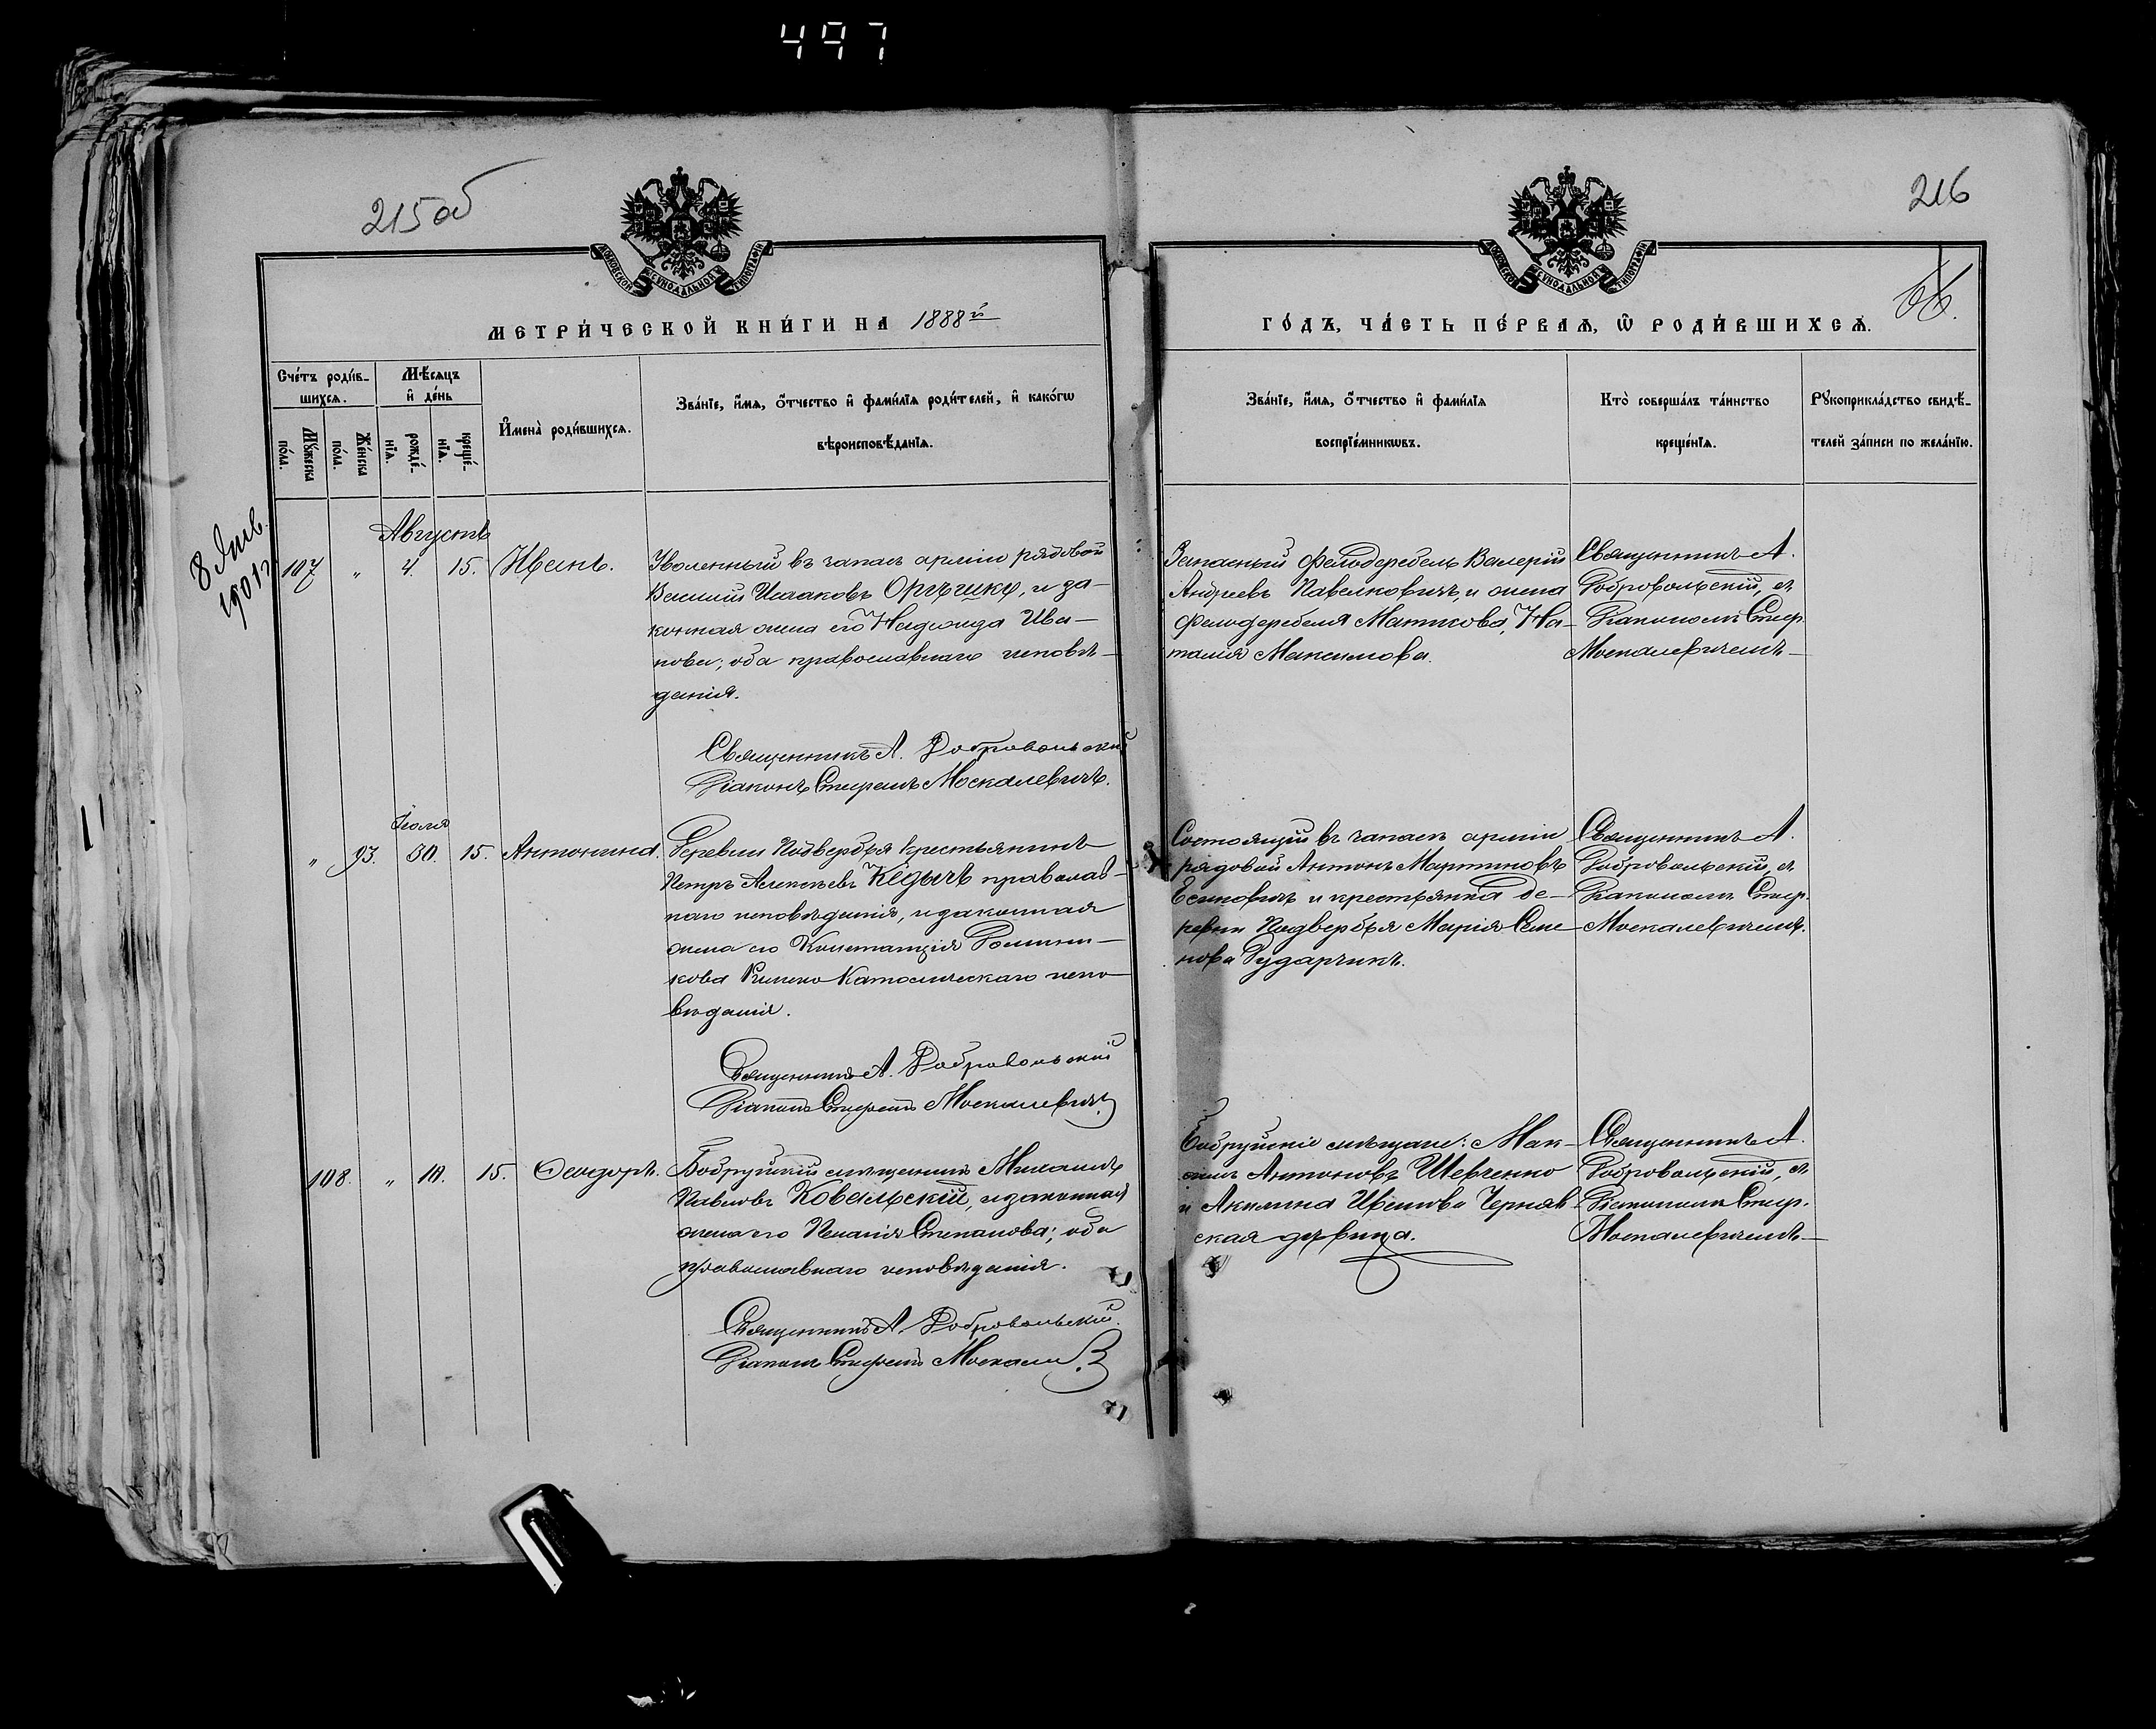 497
215об
216
66.
МОСКОВСКОЙ СѴНОДАЛЬНОЙ ТИПОГРАФІИ
МОСКОВСКОЙ СѴНОДАЛЬНОЙ ТИПОГРАФІИ
МЕТРИ́ЧЕСКОЙ КНИ́ГИ НА 1888й
ГО́ДЪ, ЧА́СТЬ ПЕ́РВАѦ, Ѿ РОДИ́ВШИХСѦ.
Сче́тъ роди́в-
шихсѧ.
Мѣ́сѧцъ
и҆ де́нь
Мꙋ́жеска
по́ла.
Же́нска
по́ла.
рожде́-
нїѧ.
креще́-
нїѧ.
И҆мена̀ роди́вшихсѧ.
Зва́нїе, и҆́мѧ, ѻ҆́тчество и҆ фами́лїѧ роди́телей, и҆ како́гѡ
вѣроисповѣ́данїѧ.
Зва́нїе, и҆́мѧ, ѻ҆́тчество и҆ фами́лїѧ
воспрїе́мникѡвъ.
Кто̀ соверша́лъ та́инство
креще́нїѧ.
Рꙋкоприкла́дство свидѣ́-
телей за́писи по жела́нїю.
8 Янв.
1901 г.
Августъ
107 " 4. 15. Иванъ.
Уволенный въ запасъ арміи рядовой
Василій Исааковъ Орѣшко, и за-
конная жена его Надежда Ива-
нова; оба православнаго исповѣ-
данія.
Священникъ А. Добровольскій
Діаконъ Спиреонъ Москалевичъ.
Запасный фельдфебель Валерій
Андреевъ Павелковичъ, и жена
фельдфебеля Матикова, На-
талія Максимова.
Священникъ А.
Добровольскій, съ
Діакономъ Спир.
Москалевичемъ
Іюля
" 93. 30. 15. Антонина.
Деревни Подвербья крестьянинъ
Петръ Алексѣевъ Кедычъ православ-
наго исповѣданія, и законная
жена его Констанція Домини-
кова Римско Католическаго испо-
вѣданія.
Священникъ А. Добровольскій
Діаконъ Спиреонъ Москалевичъ
Состоящій въ запасѣ арміи
рядовой Антонъ Мартиновъ
Есиновичъ и крестьянка де-
ревни Подвербья Марія Семе-
нова Дударчикъ.
Священникъ А.
Добровольскій, съ
Діакономъ Спир.
Москалевичемъ.
108. " 10. 15. Ѳеодоръ.
Бобруйскій мѣщанинъ Михаилъ
Павловъ Ковальскій, и законная
жена его Пелагія Степанова; оба
православнаго исповѣданія.
Священникъ А. Добровольскій.
Діаконъ Спиреонъ Москалев.
Бобруйскіе мѣщане: Мак-
симъ Антоновъ Шевченко
и Акилина Иванова Черняв-
ская дѣвица.
Священникъ А.
Добровольскій, съ
Діакономъ Спир.
Москалевичемъ